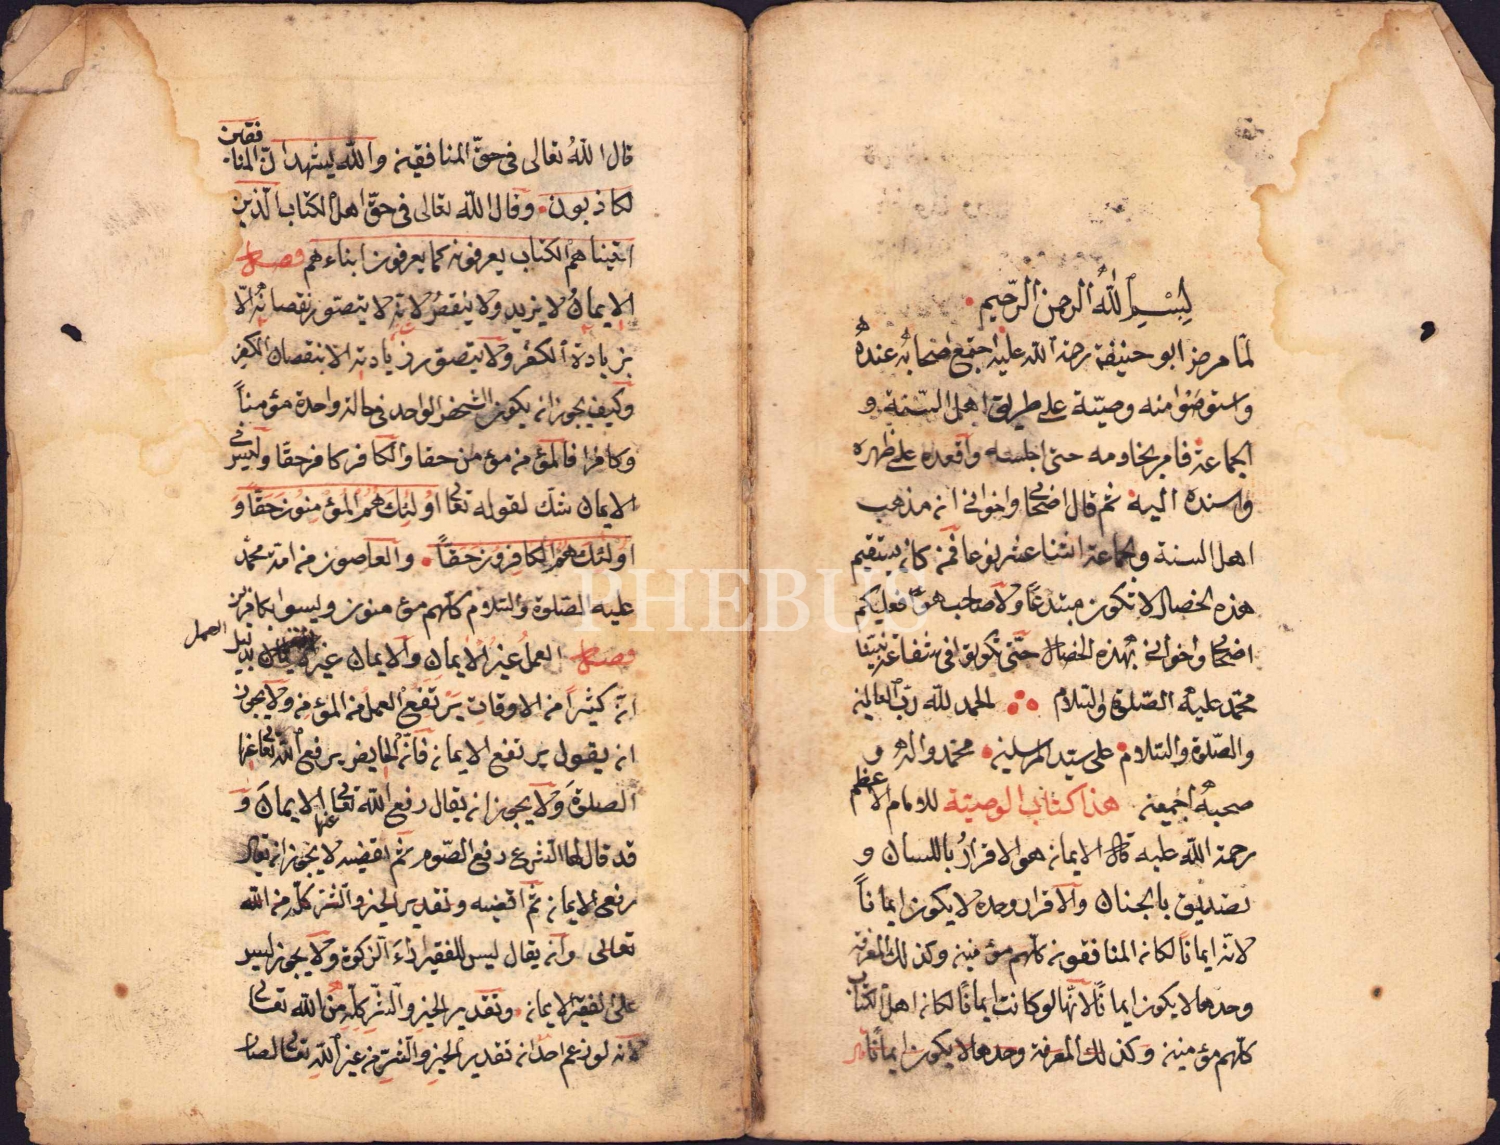 بسم الله الرحمن الرحيم
لما مرض ابو حنيفة رحمة الله عليه اجتمع اصحابه عنده
واستوصوا منه وصية على طريق اهل السنة و
الجماعة فامر بخادمه حتى اجلسه واقعده على ظهره
واسنده اليه ثم قال اصحابي واخواني ان مذهب
اهل السنة والجماعة اثنا عشر نوعا فمن كان يستقيم
هذه الخصال لا تكون مبتدعا ولا صاحب هوى فعليكم
اصحابي واخواني بهذه الخصال حتى تكونوا في شفاعة نبينا
محمد عليه الصلوة والسلام الحمد لله رب العالمين
والصلوة والسلام على سيد المرسلين محمد واله و
صحبه اجمعين هذا كتاب الوصية للامام الاعظم
رحمة الله عليه قال الايمان هو الاقرار باللسان و
تصديق بالجنان والاقرار وحده لا يكون ايمانا
لانه لو كان ايمانا لكان المنافقون كلهم مؤمنين وكذلك المعرفة
وحدها لا يكون ايمانا لانها لو كانت ايمانا لكان اهل الكتاب
كلهم مؤمنين وكذلك المعرفة وحدها لا يكون ايمانا
قال الله تعالى في حق المنافقين والله يشهد ان المنافقين
لكاذبون وقال الله تعالى في حق اهل الكتاب الذين
اتيناهم الكتاب يعرفونه كما يعرفون ابناءهم فصل
الايمان لا يزيد ولا ينقص لانه لا يتصور نقصانه الا
بزيادة الكفر ولا يتصور زيادته الا بنقصان الكفر
وكيف يجوز ان يكون الشخص الواحد في حالة واحدة مؤمنا
وكافرا فالمؤمن مؤمن حقا والكافر كافر حقا وليس في
الايمان شك لقوله تعالى اولئك هم المؤمنون حقا و
اولئك هم الكافرون حقا والعاصون من امة محمد
عليه الصلوة والسلام كلهم مؤمنون وليسوا بكافرين
فصل العمل غير الايمان والايمان غير العمل بدليل
ان كثيرا من الاوقات يرتفع العمل من المؤمن ولا يجوز
ان يقول يرتفع الايمان فان الحايض يرفع الله تعالى عنها
الصلوة ولا يجوز ان يقال رفع الله تعالى عنها الايمان و
قد قال لها الشرع دعي الصوم ثم اقضيه لا يجوز ان يقال
دعي الايمان ثم اقضيه وتقدير الخير والشر كله من الله
تعالى وان يقال ليس للفقير اداء الزكوة ولا يجوز ليس
على الفقير الايمان وتقدير الخير والشر كله من الله تعالى
لانه لو زعم احد ان تقدير الخير والشر من غير الله تعالى لصار
PHEBUS